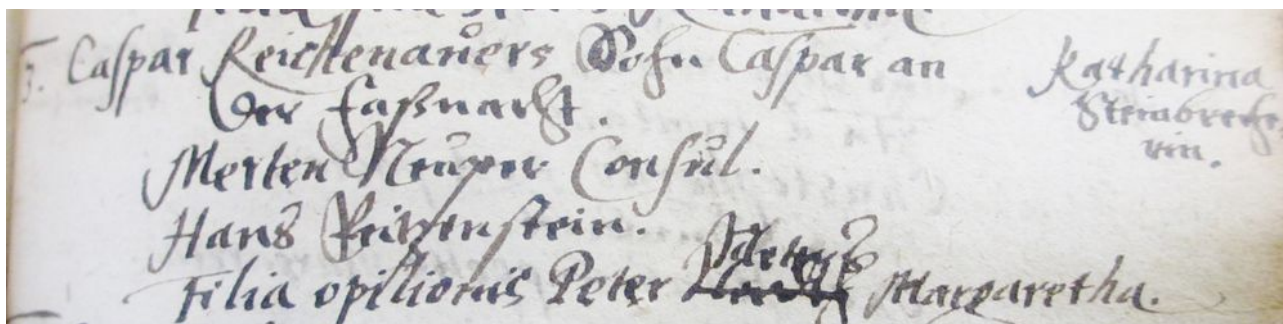 3. Caspar Reichenauers Sohn Caspar an
der Faßnacht.
Merten Neuper Consul.
Hans Reitzenstein.
Filia opilionis Peter Margaretha.
Katharina
Steinbreche
rin.